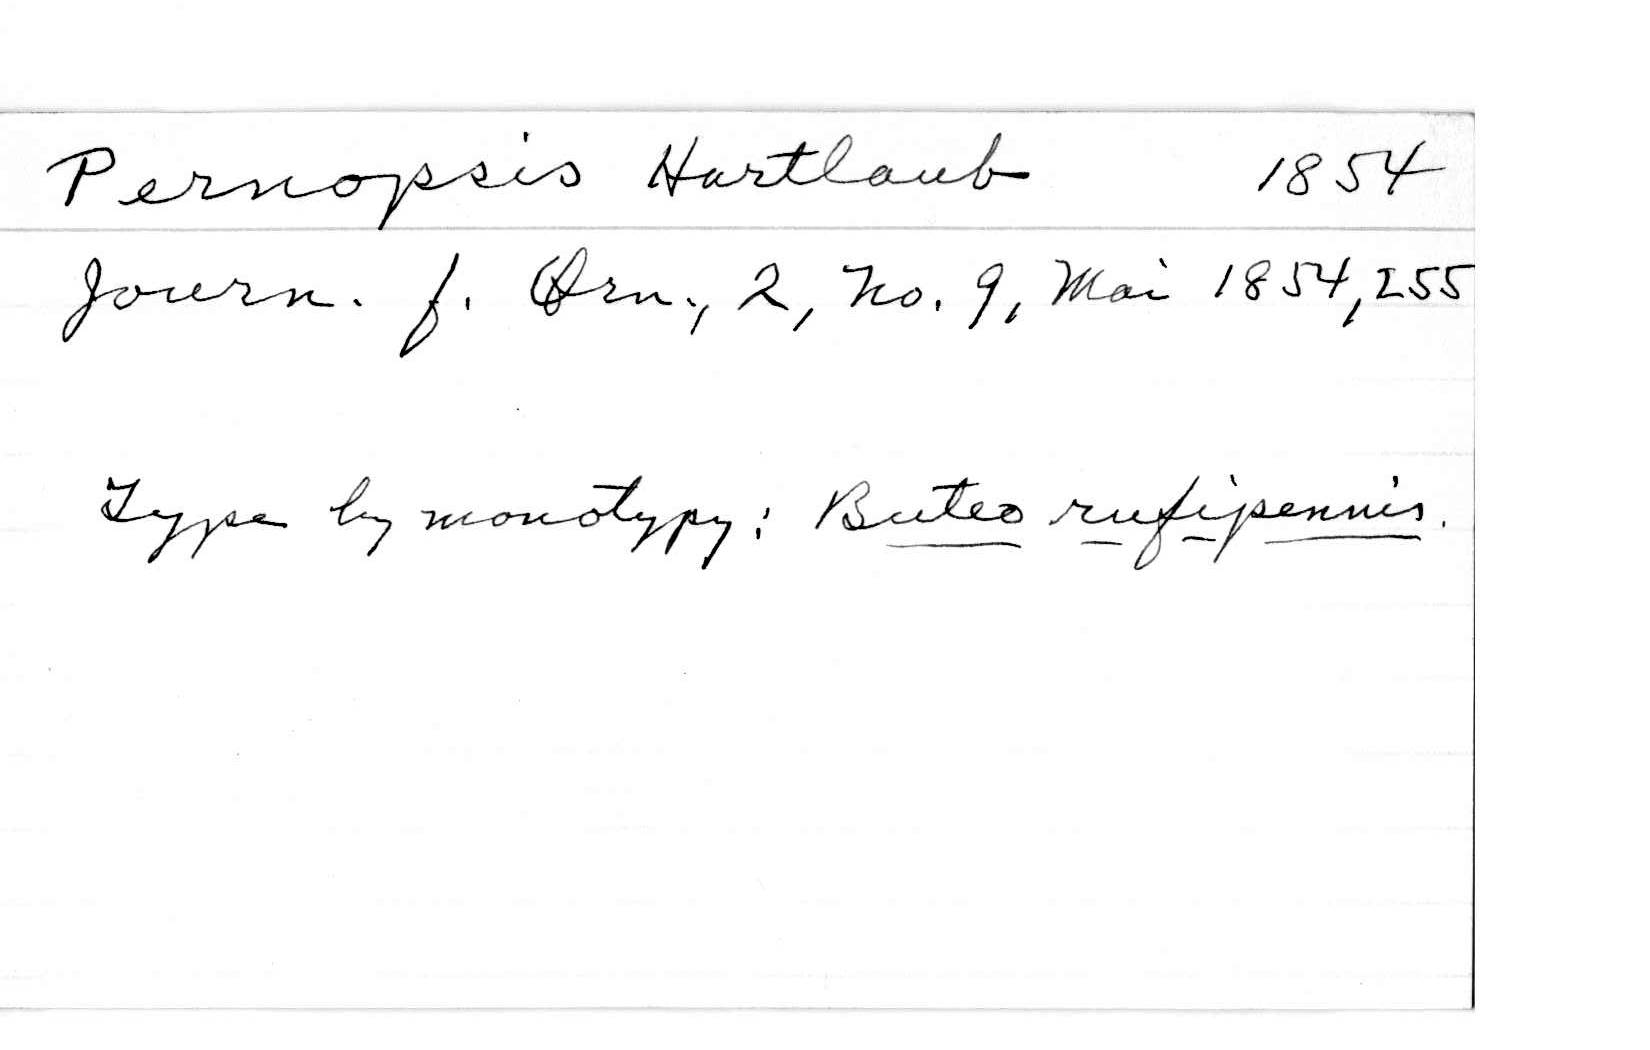 Pernopsis Hartlaub 1854
Journ. f. Orn., 2, No. 9, Mai 1854, 255
Type by monotypy: Buteo rufipennis.